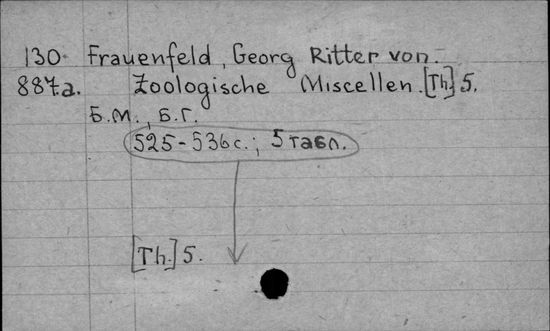 130 Frauenfeld, Georg Ritter von
887a. Zoologische Miscellen. [Th.] 5.
Б.м., Б.г.
525-536 с.; 5 табл.
[Th.] 5.